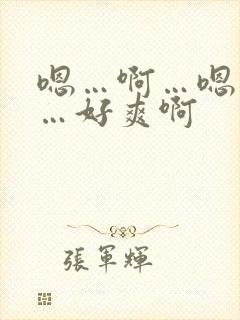 嗯…啊…嗯
…好爽啊
張軍輝